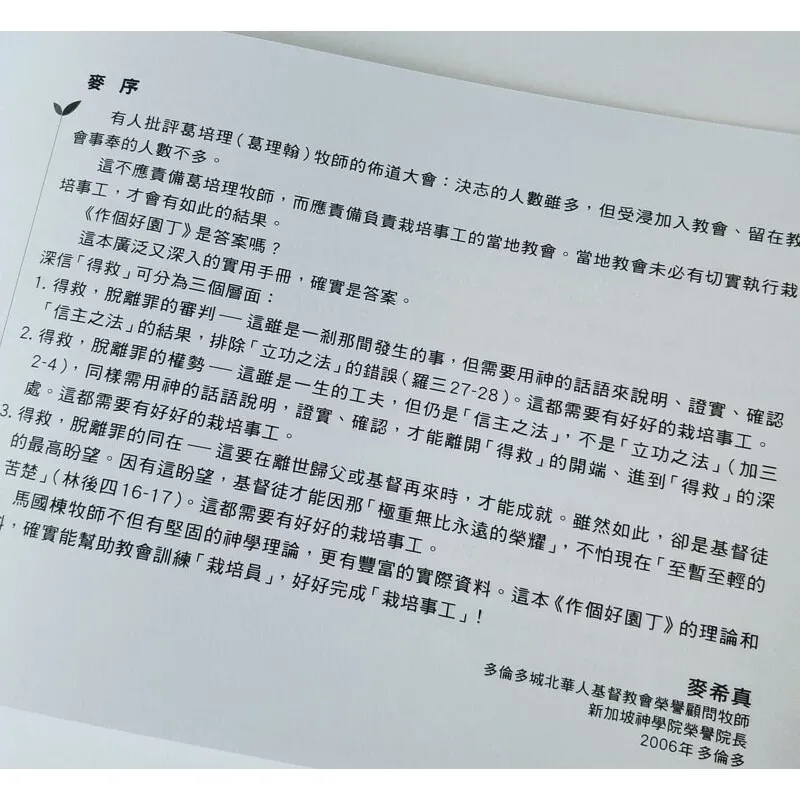 麥 序
有人批評葛培理（葛理翰）牧師的佈道大會：決志的人數雖多，但受浸加入教會、留在教
會事奉的人數不多。
這不應責備葛培理牧師，而應責備負責栽培事工的當地教會。當地教會未必有切實執行栽
培事工，才會有如此的結果。
《作個好園丁》是答案嗎？
這本廣泛又深入的實用手冊，確實是答案。
深信「得救」可分為三個層面：
1. 得救，脫離罪的審判 — 這雖是一剎那間發生的事，但需要用神的話語來說明、證實、確認
「信主之法」的結果，排除「立功之法」的錯誤（羅三27-28）。這都需要有好好的栽培事工。
2. 得救，脫離罪的權勢 — 這雖是一生的工夫，但仍是「信主之法」，不是「立功之法」（加三
2-4），同樣需用神的話語說明，證實、確認，才能離開「得救」的開端、進到「得救」的深
處。這都需要有好好的栽培事工。
3. 得救，脫離罪的同在 — 這要在離世歸父或基督再來時，才能成就。雖然如此，卻是基督徒
的最高盼望。因有這盼望，基督徒才能因那「極重無比永遠的榮耀」，不怕現在「至暫至輕的
苦楚」（林後四16-17）。這都需要有好好的栽培事工。
馬國棟牧師不但有堅固的神學理論，更有豐富的實際資料。這本《作個好園丁》的理論和
，確實能幫助教會訓練「栽培員」，好好完成「栽培事工」！
麥希真
多倫多城北華人基督教會榮譽顧問牧師
新加坡神學院榮譽院長
2006年 多倫多